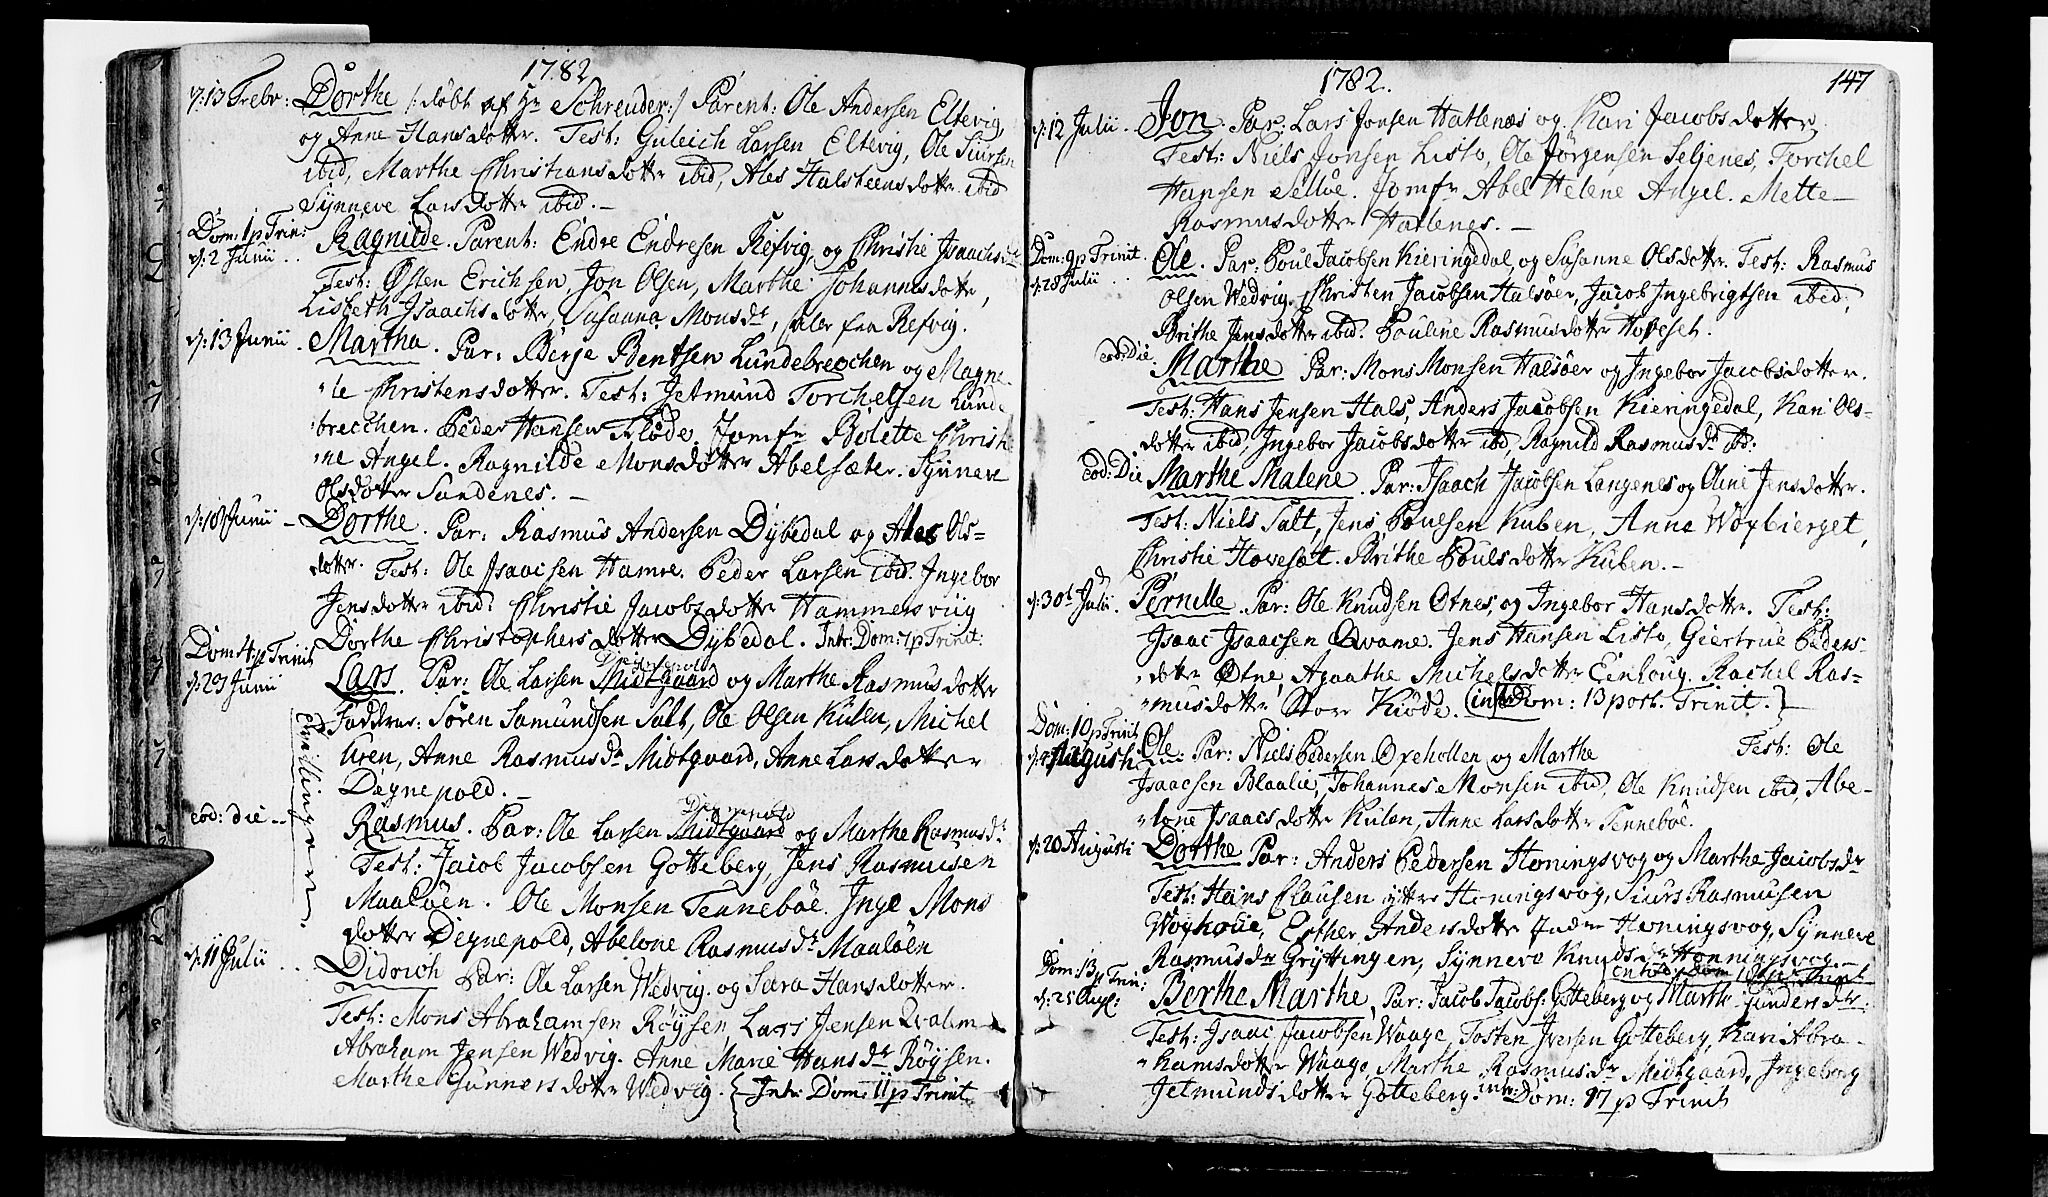 1782
d: 13 Febr: Dorthe /: døbt af Hr Schreuder :/ Parent: Ole Andersen Eltevig
og Anne Hansdotter. Test: Guleich Larsen Eltevig, Ole Siursen
ibid, Marthe Christiansdotter ibid, Ales Halsteensdotter ibid
Synneve Larsdotter ibid. -
Dom: 1 p Trin: d: 2 Junii .. Ragnilde. Parent: Endre Endresen Refvig og Christie Isaachsdr
Test: Østen Erichsen, Jon Olsen, Marthe Johannesdotter,
Lisbeth Isaachsdotter, Susanna Monsdr, alle fra Refvig.
d: 13 Junii . Martha. Par: Børje Bentsen Lundebrechen og Magne
"le Christensdotter. Test: Jetmund Torchelsen Lunde
brecchen. Peder Hansen Fløde. Jomfr Bolette Christi
"ne Angel. Ragnilde Monsdotter Abelsæter. Synneve
Olsdotter Sandenes. -
d: 18 Junii - Dorthe. Par: Rasmus Andersen Dybedal og Ales Ols=
dotter. Test: Ole Isaachsen Hamre. Peder Larsen ibid. Ingebor
Jensdotter ibid: Christie Jacobsdotter Hammersviig
Dorthe Christophersdotter Dybedal. Intr: Dom: 7 p Trinit:
Degnepold
Dom 4 p Trinit d: 23 Junii Lars. Par: Ole Larsen Midtgaard og Marthe Rasmusdotter
Faddere: Søren Samundsen Salt, Ole Olsen Kulen, Michel
Uren, Anne Rasmusdr Midtgaard, Anne Larsdotter
Degnepold. -
Tvillinger
Degnepold
eod: die -- Rasmus. Par: Ole Larsen Midtgaard og Marthe Rasmusdr
Test: Jacob Jacobsen Gotteberg Jens Rasmusen
Maaløen. Ole Monsen Tennebøe. Inge Mons
dotter Degnepold, Abelone Rasmusdr Maaløen
d: 11 Julii .. Didrich Par: Ole Larsen Wedvig. og Sara Hansdotter.
Test: Mons Abrahamsen Røysen, Lars Jensen Qvalem
Abraham Jensen Wedvig. Anne Marie Hansdr Røysen.
Marthe Gunnersdotter Wedvig. { Intr: Dom: 11 p Trinit
1782.
147
d: 12 Julii. Jon. Par: Lars Jonsen Hatlenæs og Kari Jacobsdotter
Test: Niels Jonsen Listo, Ole Jørgensen Seljenes, Torchel
Hansen Selløe. Jomfr Abel Helene Angel. Mette
Rasmusdotter Hatlenes. -
Dom: 9 p Trinit. d: 28 Julii .. Ole. Par: Poul Jacobsen Kieringedal, og Susanne Olsdotter. Test: Rasmus
Olsen Wedvig. Christen Jacobsen Halsøer, Jacob Ingebrigtsen ibid,
Brithe Jensdotter ibid. Poulene Rasmusdotter Hoveset.
eod: Die. Marthe Par: Mons Monsen Halsøer og Ingebor Jacobsdotter.
Test: Hans Jensen Hals, Anders Jacobsen Kieringedal, Kari Ols=
dotter ibid, Ingebor Jacobsdotter ibd, Ragnild Rasmusdr ibd:
eod: Die Marthe Malene. Par: Isaach Jacobsen Langenes og Oline Jensdotter.
Test: Niels Salt, Jens Poulsen Kuben, Anna Woxbierget,
Christie Hovesæt. Brithe Poulsdotter Kuben. -
d: 30t Julii. Pernille. Par: Ole Knudsen Otnes, og Ingebor Hansdotter. Test:
Isaac Isaacsen Qvame. Jens Hansen Listo, Giertrue Peders=
"dotter Otne, Agaathe Michelsdotter Einhoug. Rachel Ras=
"musdotter Store Kiøde. (intr Dom: 13 post. Trinit.)
Dom: 10 p Trinit d: 4 Augusti Ole. Par: Niels Pedersen Oxeholten og Marthe Test: Ole
Isaachsen Blaalie, Johannes Monsen ibid, Ole Knudsen ibid, Abe-
"lone Isaacsdotter Kulen, Anne Larsdotter Tennebøe.
d: 20 Augusti Dorthe Par: Anders Pedersen Honingsvog og Marthe Jacobsdr
Test: Hans Clausen yttre Honingsvog, Siurs Rasmusen
Esther Andersdotter Indre Honingsvog, Synneve
Rasmusdr Gryttingen, Synneve Knudsdr Honningsvog -
Dom: 13 p Trin: d: 25 Aug: Berthe Marthe, Par: Jacob Jacobs: Gotteberg og Marthe Gundersdtr:
Test: Isaac Jacobsen Waage, Tosten Iversen Gotteberg, Kari Abra-
"hamsdotter Waage, Marthe Rasmusdr Midtgaard, Ingeborg
Jetmundsdotter Gotteberg. intr: Dom: 17 p Trinit